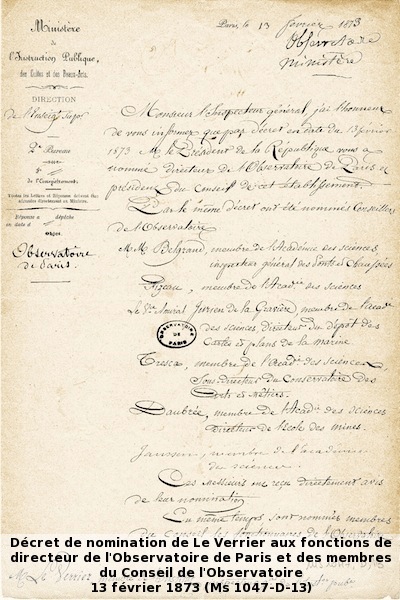 Paris, le 13 février 1873
Observatoire
ministère
Ministère
de
l'Instruction Publique,
des Cultes et des Beaux-Arts.
DIRECTION
de l'Enseigt Supr
2e Bureau
de l'Enregistrement
Toutes les Lettres et Réponses doivent être
adressées directement au Ministre.
Réponse à dépêche
en date d
OBJET.
Observatoire
de Paris.
Monsieur l'Inspecteur général, j'ai l'honneur
de vous informer que par décret en date du 13 février
1873 Mr le Président de la République vous a
nommé directeur de l'Observatoire de Paris et
président du Conseil de cet établissement.
Par le même décret ont été nommés Conseillers
de l'Observatoire
M.M. Belgrand, membre de l'Académie des sciences
inspecteur général des Ponts et Chaussées
Fizeau, membre de l'Acad. des sciences
Le Vce Amiral Jurien de la Gravière, membre de l'acad.
des sciences directeur du dépôt des
Cartes et plans de la marine
OBSERVATOIRE
DE
PARIS
Tresca, membre de l'Acad. des sciences
Sous-directeur du Conservatoire des
Arts et Métiers.
Daubrée, membre de l'Acad. des sciences
directeur de l'école des mines.
Janssen, membre de l'académie
des sciences.
Ces messieurs ont reçu directement avis
de leur nomination
En même temps, sont nommés membres
du Conseil les fonctionnaires de l'
Décret de nomination de Le Verrier aux fonctions de
directeur de l'Observatoire de Paris et des membres
du Conseil de l'Observatoire
13 février 1873 (Ms 1047-D-13)
Le Verrier